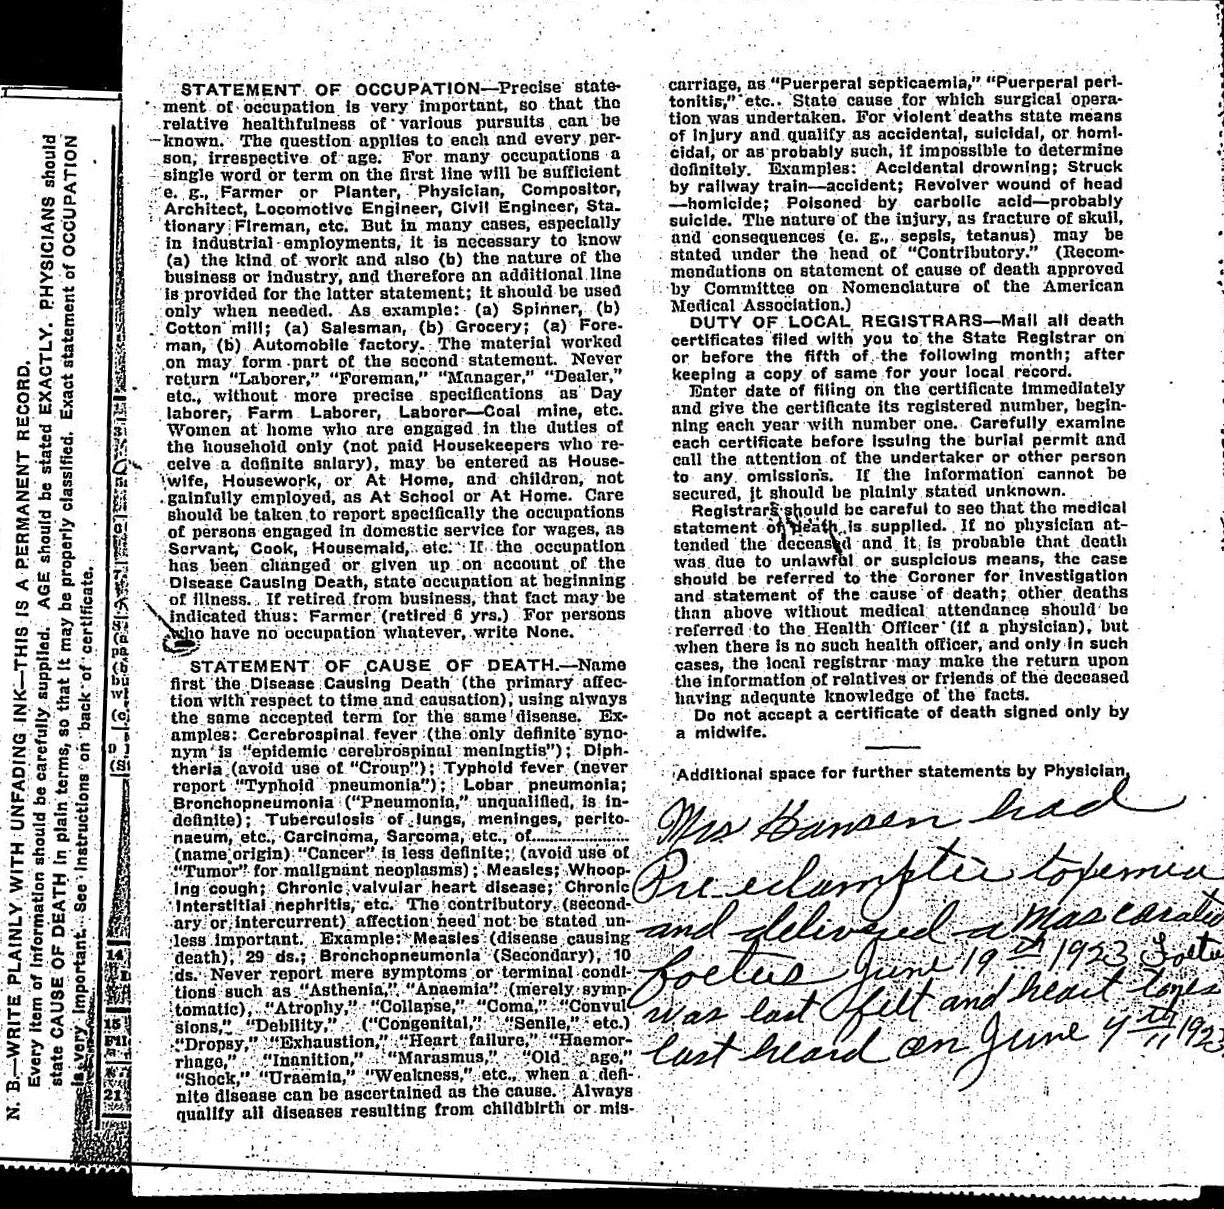 N. B.—WRITE PLAINLY WITH UNFADING INK—THIS IS A PERMANENT RECORD.
Every item of information should be carefully supplied. AGE should be stated EXACTLY. PHYSICIANS should
state CAUSE OF DEATH in plain terms, so that it may be properly classified. Exact statement of OCCUPATION
is very important. See instructions on back of certificate.
14
15
21
STATEMENT OF OCCUPATION—Precise state-
ment of occupation is very important, so that the
relative healthfulness of various pursuits can be
known. The question applies to each and every per-
son, irrespective of age. For many occupations a
single word or term on the first line will be sufficient
e. g., Farmer or Planter, Physician, Compositor,
Architect, Locomotive Engineer, Civil Engineer, Sta-
tionary Fireman, etc. But in many cases, especially
in industrial employments, it is necessary to know
(a) the kind of work and also (b) the nature of the
business or industry, and therefore an additional line
is provided for the latter statement; it should be used
only when needed. As example: (a) Spinner, (b)
Cotton mill; (a) Salesman, (b) Grocery; (a) Fore-
man, (b) Automobile factory. The material worked
on may form part of the second statement. Never
return "Laborer," "Foreman," "Manager," "Dealer,"
etc., without more precise specifications as Day
laborer, Farm Laborer, Laborer—Coal mine, etc.
Women at home who are engaged in the duties of
the household only (not paid Housekeepers who re-
ceive a definite salary), may be entered as House-
wife, Housework, or At Home, and children, not
gainfully employed, as At School or At Home. Care
should be taken to report specifically the occupations
of persons engaged in domestic service for wages, as
Servant, Cook, Housemaid, etc. If the occupation
has been changed or given up on account of the
Disease Causing Death, state occupation at beginning
of illness. If retired from business, that fact may be
indicated thus: Farmer (retired 6 yrs.) For persons
who have no occupation whatever, write None.
STATEMENT OF CAUSE OF DEATH.—Name
first the Disease Causing Death (the primary affec-
tion with respect to time and causation), using always
the same accepted term for the same disease. Ex-
amples: Cerebrospinal fever (the only definite syno-
nym is "epidemic cerebrospinal meningtis"); Diph-
theria (avoid use of "Croup"); Typhoid fever (never
report "Typhoid pneumonia"); Lobar pneumonia;
Bronchopneumonia ("Pneumonia," unqualified, is in-
definite); Tuberculosis of lungs, meninges, perito-
naeum, etc., Carcinoma, Sarcoma, etc., of....................
(name origin) "Cancer" is less definite; (avoid use of
"Tumor" for malignant neoplasms); Measles; Whoop-
ing cough; Chronic valvular heart disease; Chronic
interstitial nephritis, etc. The contributory (second-
ary or intercurrent) affection need not be stated un-
less important. Example: Measles (disease causing
death), 29 ds.; Bronchopneumonia (Secondary), 10
ds. Never report mere symptoms or terminal condi-
tions such as "Asthenia," "Anaemia" (merely symp-
tomatic), "Atrophy," "Collapse," "Coma," "Convul
sions," "Debility," ("Congenital," "Senile," etc.)
"Dropsy," "Exhaustion," "Heart failure," "Haemor-
rhage," "Inanition," "Marasmus," "Old age,"
"Shock," "Uraemia," "Weakness," etc., when a defi-
nite disease can be ascertained as the cause. Always
qualify all diseases resulting from childbirth or mis-
carriage, as "Puerperal septicaemia," "Puerperal peri-
tonitis," etc. State cause for which surgical opera-
tion was undertaken. For violent deaths state means
of injury and qualify as accidental, suicidal, or homi-
cidal, or as probably such, if impossible to determine
definitely. Examples: Accidental drowning; Struck
by railway train—accident; Revolver wound of head
—homicide; Poisoned by carbolic acid—probably
suicide. The nature of the injury, as fracture of skull,
and consequences (e. g., sepsis, tetanus) may be
stated under the head of "Contributory." (Recom-
mendations on statement of cause of death approved
by Committee on Nomenclature of the American
Medical Association.)
DUTY OF LOCAL REGISTRARS—Mail all death
certificates filed with you to the State Registrar on
or before the fifth of the following month; after
keeping a copy of same for your local record.
Enter date of filing on the certificate immediately
and give the certificate its registered number, begin-
ning each year with number one. Carefully examine
each certificate before issuing the burial permit and
call the attention of the undertaker or other person
to any omissions. If the information cannot be
secured, it should be plainly stated unknown.
Registrars should be careful to see that the medical
statement of death is supplied. If no physician at-
tended the deceased and it is probable that death
was due to unlawful or suspicious means, the case
should be referred to the Coroner for investigation
and statement of the cause of death; other deaths
than above without medical attendance should be
referred to the Health Officer (if a physician), but
when there is no such health officer, and only in such
cases, the local registrar may make the return upon
the information of relatives or friends of the deceased
having adequate knowledge of the facts.
Do not accept a certificate of death signed only by
a midwife.
Additional space for further statements by Physician.
Mrs Hansen had
Pre-eclamptic toxemia
and delivered a Mascerated
foetus June 19th 1923 Foetus
was last felt and heart tones
last heard on June 4th 1923